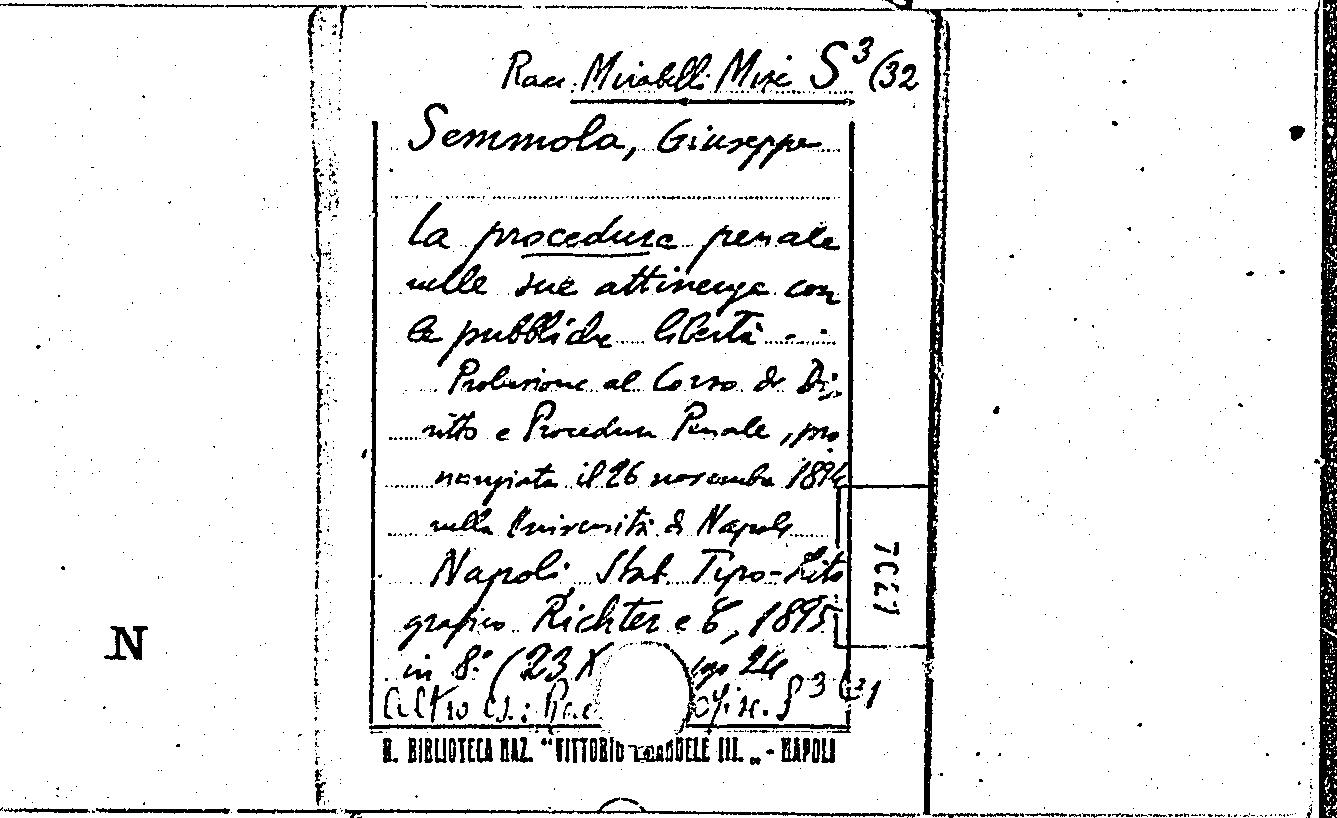 Racc. Mirabelli Misc S³ (32
Semmola, Giuseppe
La procedura penale
nelle sue attinenze con
le pubbliche libertà . .
Prolusione al Corso di Di-
ritto e Procedura Penale, pro
nunziata il 26 novembre 1894
nella Università di Napoli
Napoli Stab. Tipo-Lito
grafico Richter e C, 1895
in 8.° (23 X pgg 24
altro es.: Rac Misc. S³ (31
R. BIBLIOTECA NAZ. "VITTORIO EMANUELE III." - NAPOLI
N